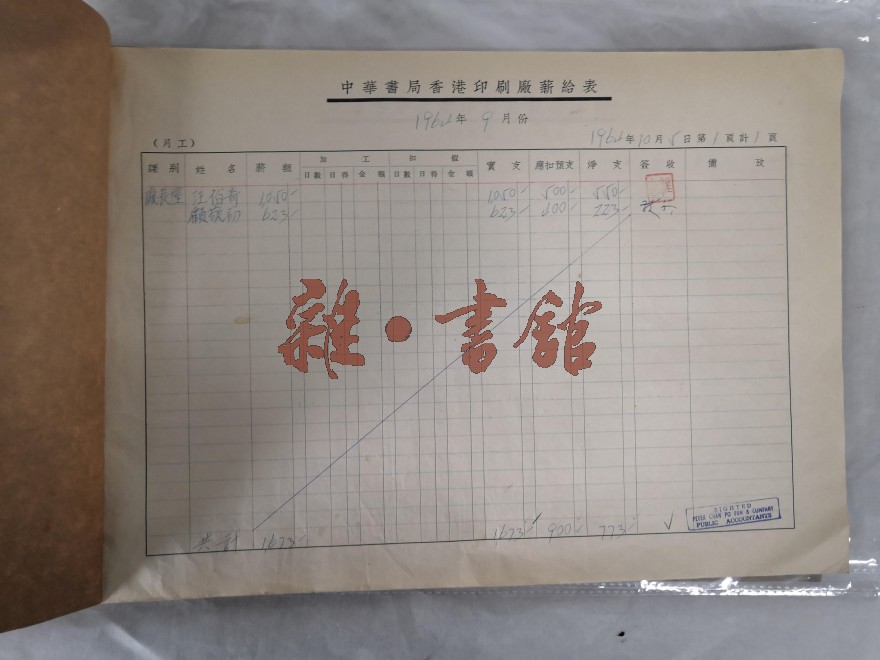 中華書局香港印刷廠薪給表
1964年 9 月份
(月工)
1964年10月5日第1頁計1頁
課別 姓名 薪額 加工 扣假 實支 應扣預支 淨支 簽收 備攷
日數 日待 金額 日數 日待 金額
廠長室 江伯荷 1050/ 1050/ 500/ 550/
623/ 623/ 400/ 223/
雜·書館
共計 1673/ 1673/ 900/ 773/ √
SIGHTED
PETER CHAN PO FUN & COMPANY
PUBLIC ACCOUNTANTS